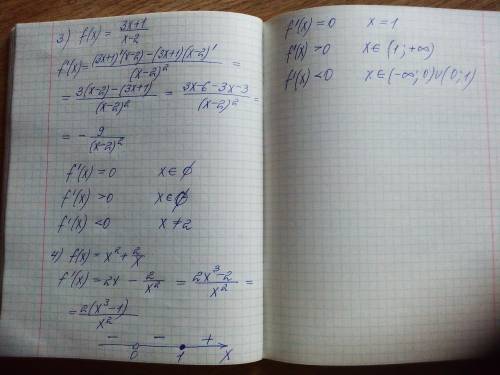 3) f(x) = (3x+1)/(x-2)
f'(x) = ((3x+1)'(x-2) - (3x+1)(x-2)')/(x-2)² =
= (3(x-2) - (3x+1))/(x-2)² = (3x-6-3x-3)/(x-2)² =
= - 9/(x-2)²
f'(x) = 0 x ∈ ∅
f'(x) > 0 x ∈ ∅
f'(x) < 0 x ≠ 2
4) f(x) = x² + 2/x
f'(x) = 2x - 2/x² = (2x³-2)/x² =
= 2(x³-1)/x²
- - +
0 1 x
f'(x) = 0 x = 1
f'(x) > 0 x ∈ (1; +∞)
f'(x) < 0 x ∈ (-∞; 0) ∪ (0; 1)